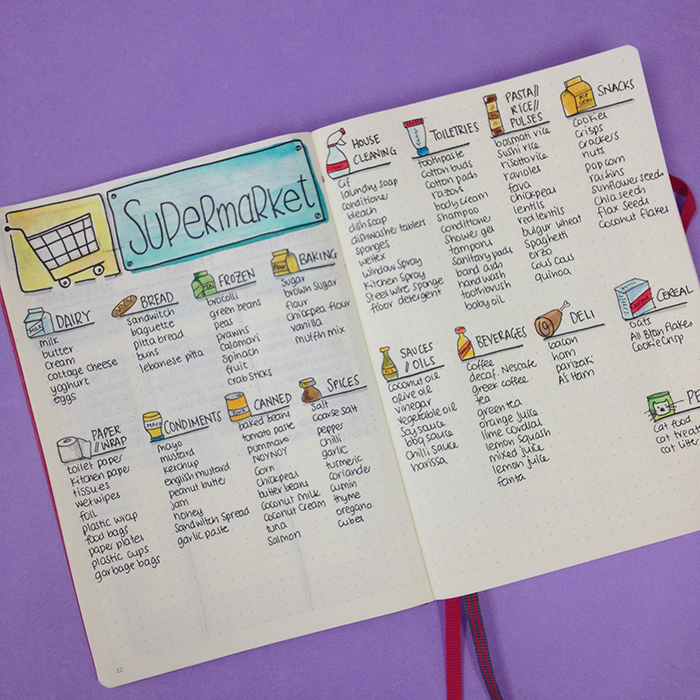 SUPERMARKET
DAIRY
milk
butter
cream
cottage cheese
yoghurt
eggs
BREAD
sandwitch
baguette
pitta bread
buns
lebanese pitta
FROZEN
brocolli
green beans
peas
prawns
calamari
spinach
fruit
crab sticks
BAKING
sugar
brown sugar
flour
chickpea flour
vanilla
muffin mix
PAPER
//WRAP
toilet paper
kitchen paper
tissues
wetwipes
foil
plastic wrap
food bags
paper plates
plastic cups
garbage bags
CONDIMENTS
mayo
mustard
ketchup
english mustard
peanut butter
jam
honey
Sandwitch Spread
garlic paste
CANNED
baked beans
tomato paste
pummavo
NOYNOY
corn
chickpeas
butter beans
coconut milk
coconut cream
tuna
salmon
SPICES
salt
coarse salt
pepper
chilli
garlic
turmeric
coriander
cumin
thyme
oregano
cubes
32
HOUSE
CLEANING
cif
laundry soap
conditioner
bleach
dish soap
dishwasher tablets
sponges
wettex
window spray
kitchen spray
Steel wire sponge
floor detergent
TOILETRIES
toothpaste
cotton buds
cotton pads
razors
body cream
shampoo
conditioner
shower gel
tampons
sanitary pads
band aids
hand wash
toothbrush
baby oil
PASTA//
RICE//
PULSES
basmati rice
Sushi rice
risotto rice
ravioles
fava
chickpeas
lentils
red lentils
bulgur wheat
spaghetti
orzo
cous cous
quinoa
SNACKS
cookies
crisps
crackers
nuts
pop corn
raisins
sunflower seeds
chia seeds
flax seeds
coconut flakes
SAUCES
//OILS
coconut oil
olive oil
vinegar
vegetable oil
soy sauce
bbq sauce
chilli sauce
harissa
BEVERAGES
coffee
decaf. Nescafe
greek coffee
tea
green tea
orange juice
lime cordial
lemon squash
mixed juice
lemon juice
fanta
DELI
bacon
ham
parizaki
CEREAL
oats
All Bran Flakes
Cookie Crisp
PE
cat food
cat treat
cat litter